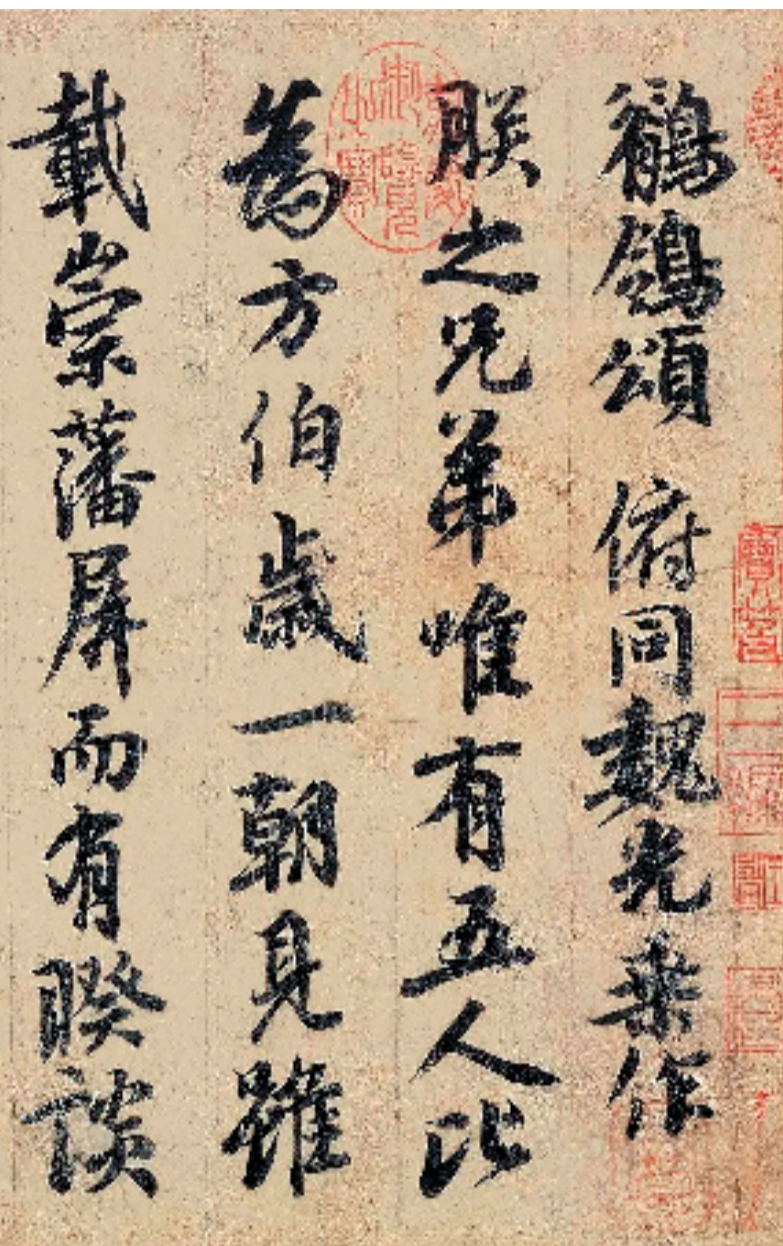 鶺鴒頌 俯同魏光乘作
朕之兄弟唯有五人比
為方伯歲一朝見雖
載崇藩屏而有睽談